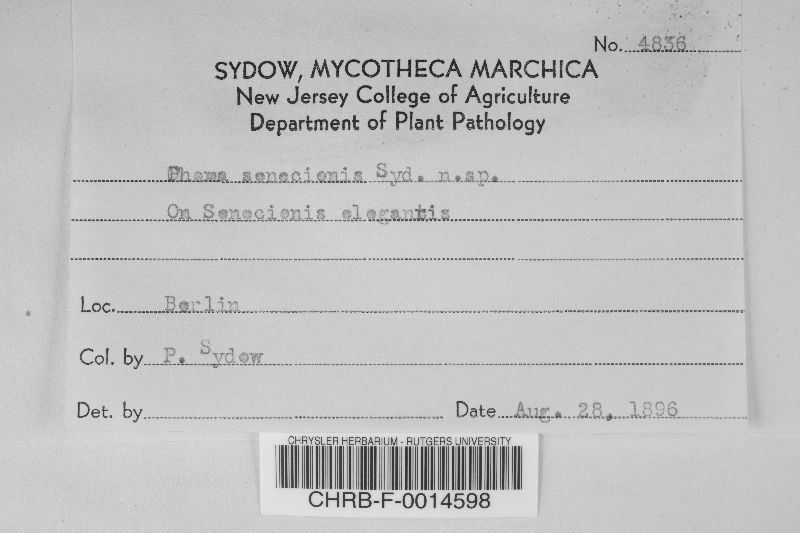 No. 4836
SYDOW, MYCOTHECA MARCHICA
New Jersey College of Agriculture
Department of Plant Pathology
Phoma senecionis Syd. n.sp.
On Senecionis elegantis
Loc. Berlin
Col. by P. Sydow
Det. by Date Aug. 28, 1896
CHRYSLER HERBARIUM - RUTGERS UNIVERSITY
CHRB-F-0014598